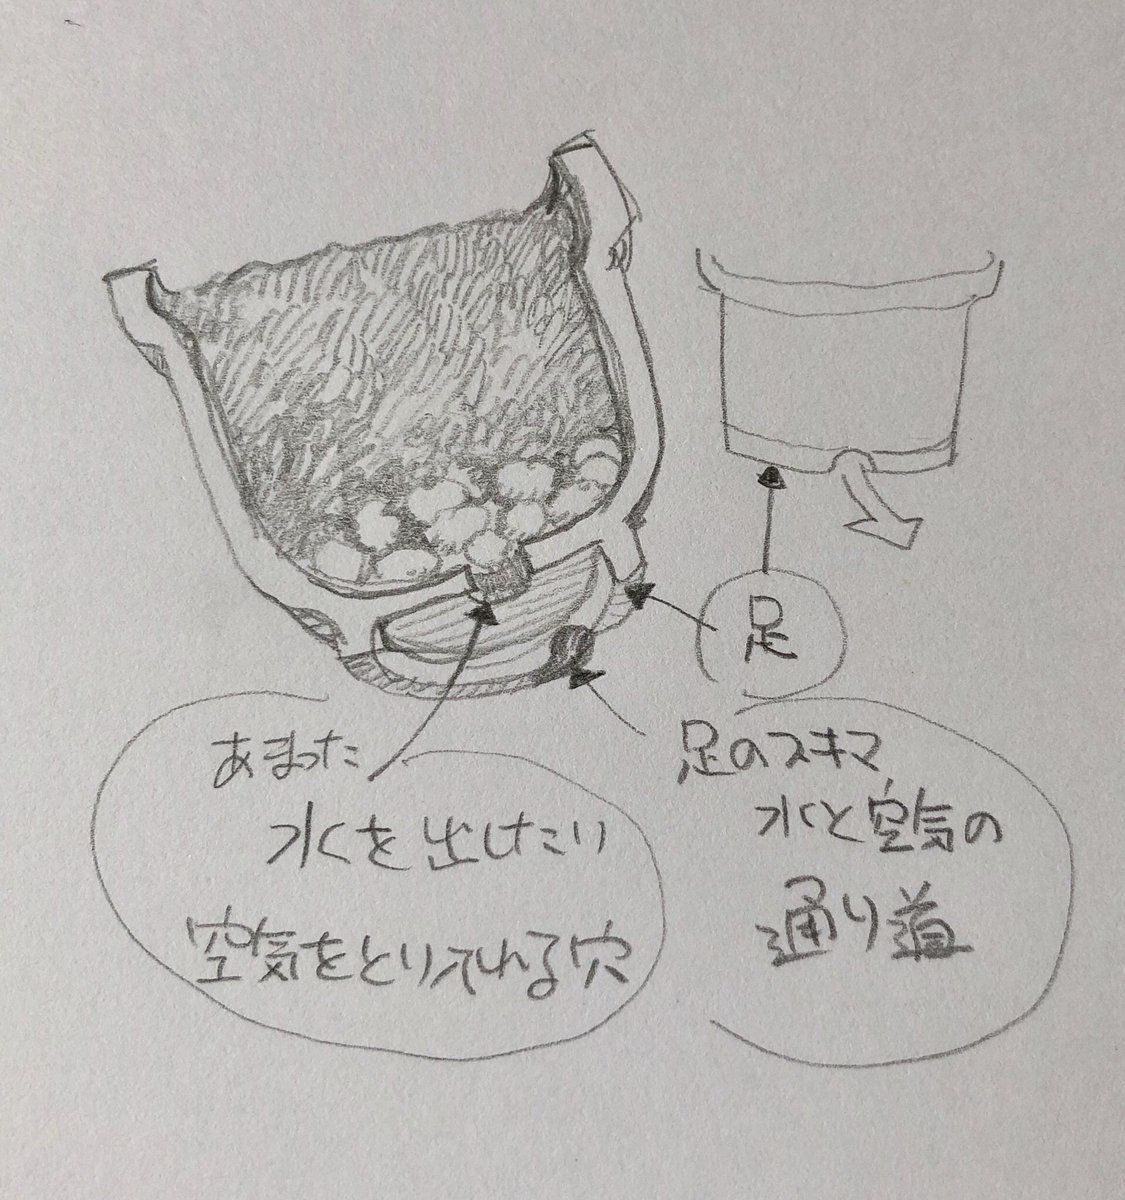 足
あまった
水を出したり
空気をとり入れる穴
足のスキマ
水と空気の
通り道